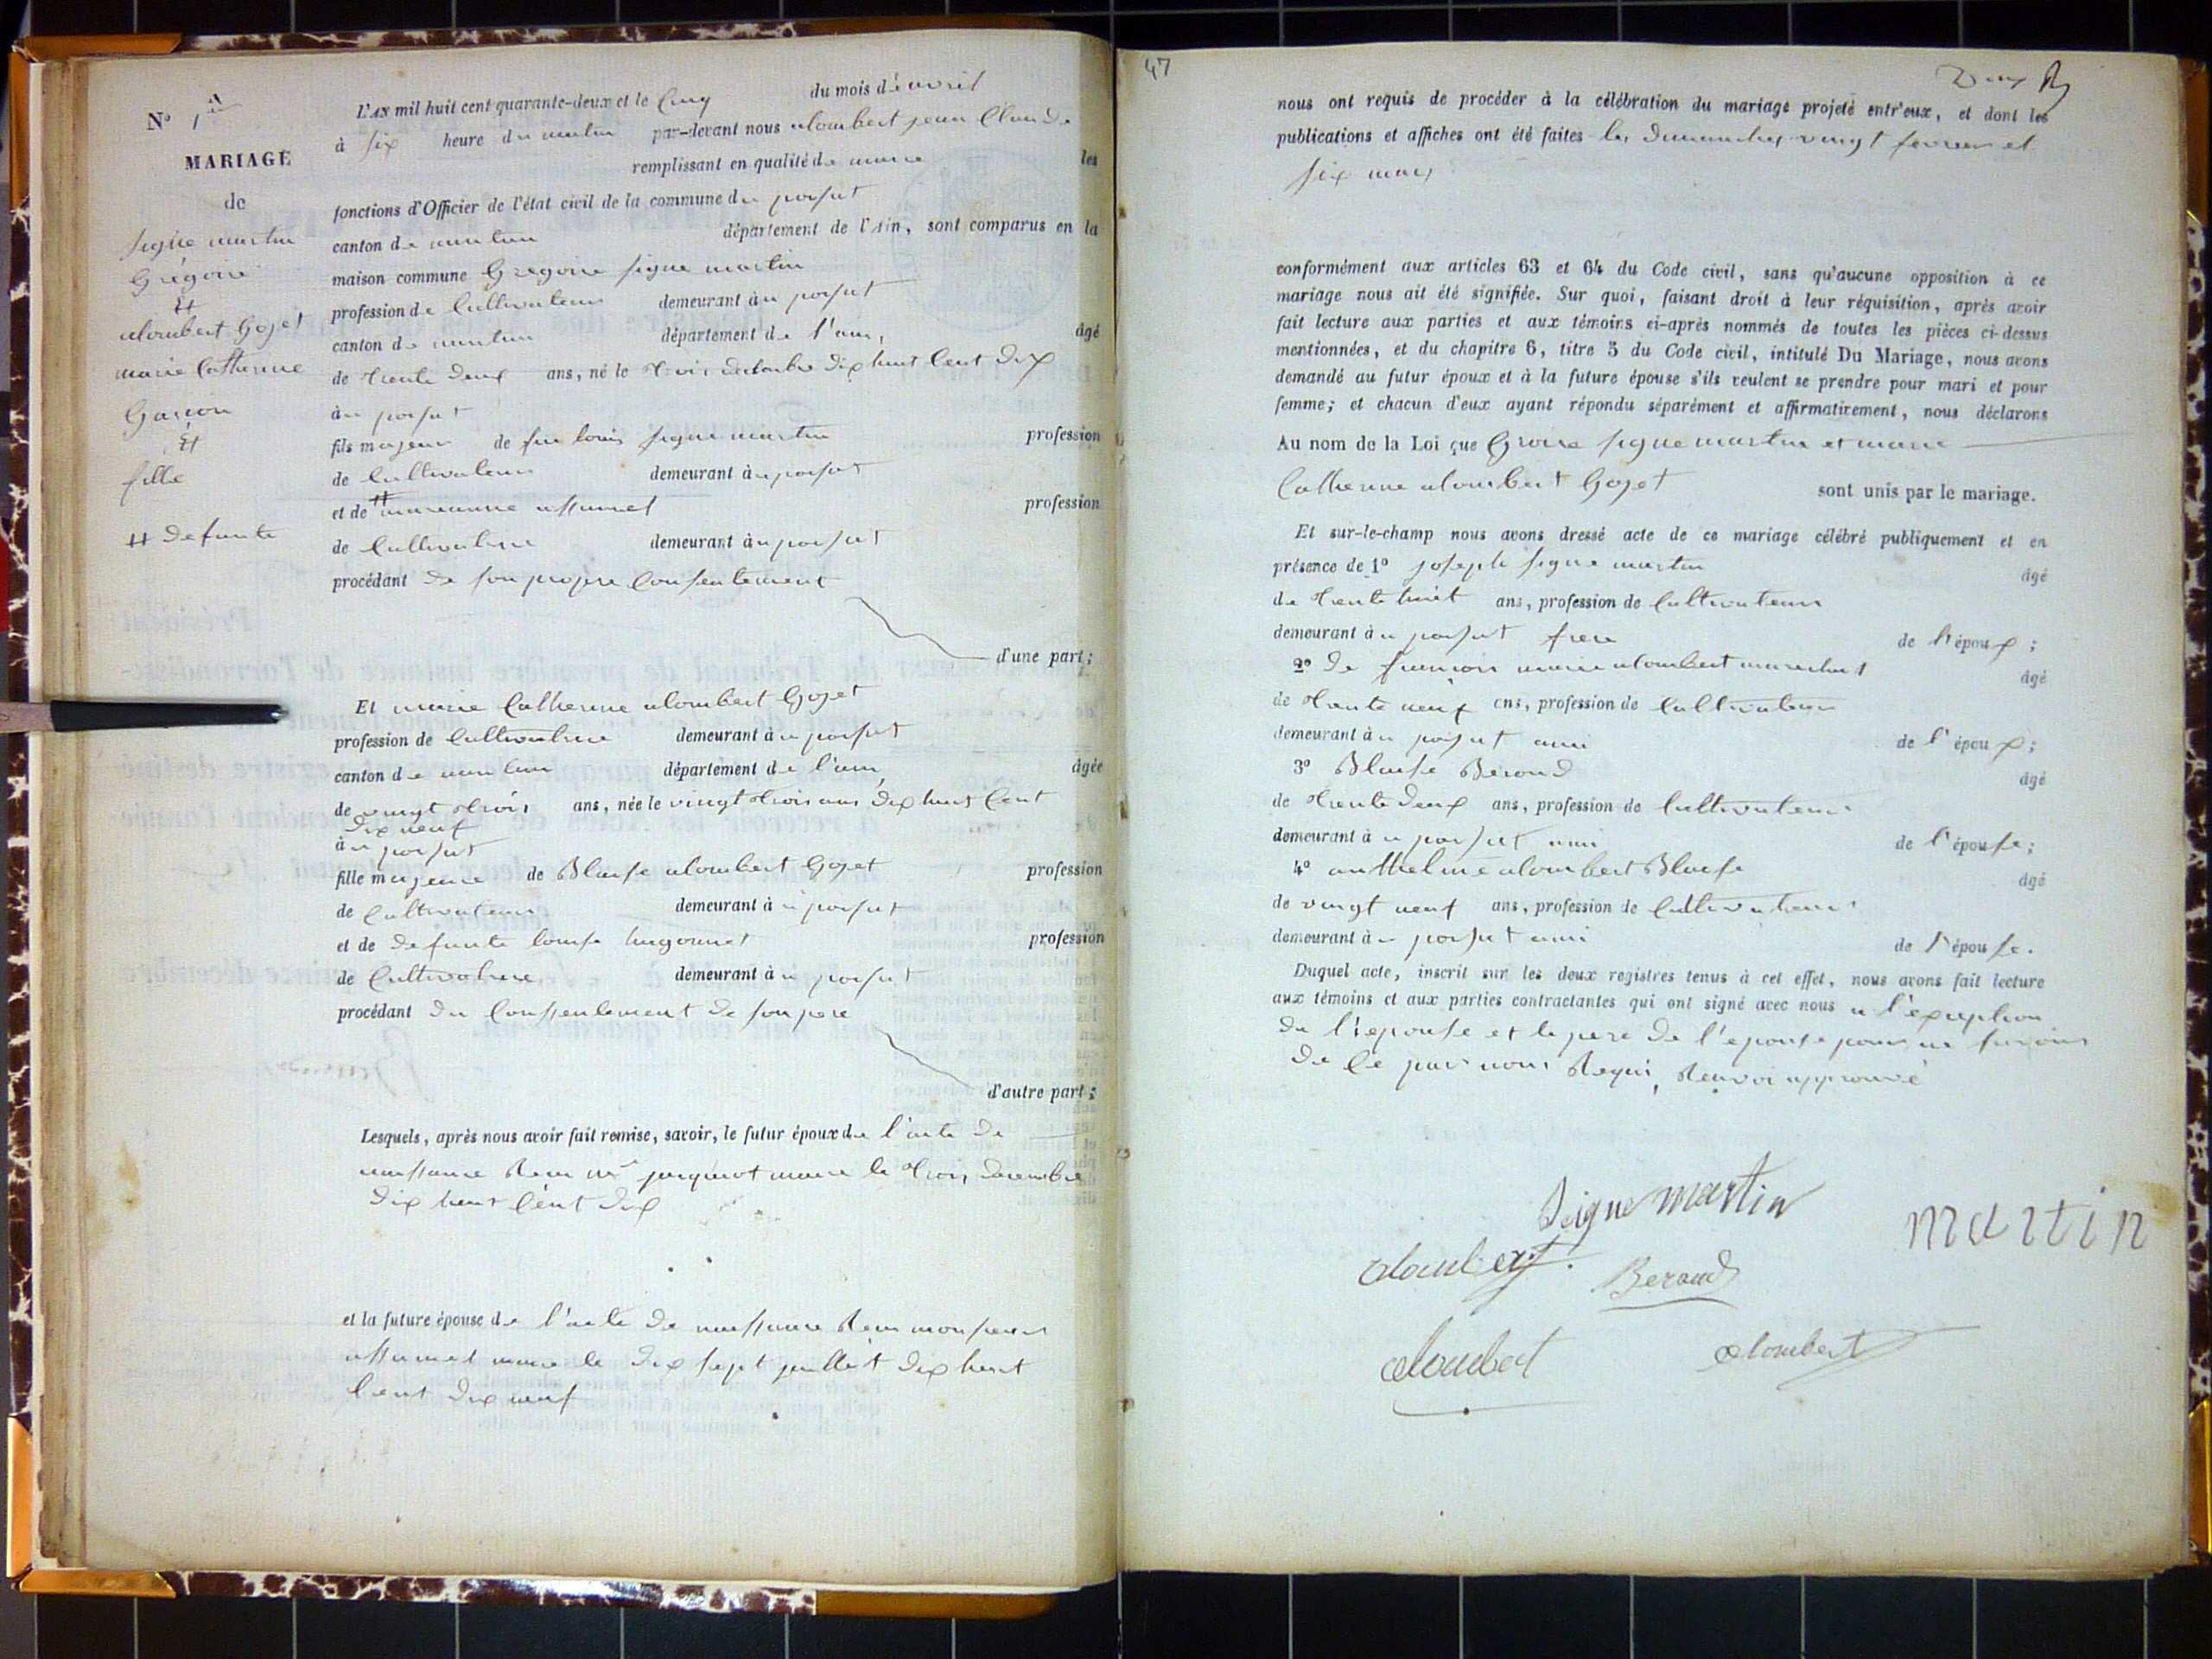 N° 1er
MARIAGE
de
Seigne martin
Grégoire
Et
alombert Goget
marie Catherine
Garçon
Et
fille
# defunte
L'AN mil huit cent quarante-deux et le Cinq du mois d'avril
à six heure du matin par-devant nous alombert jean Claude
remplissant en qualité de maire les
fonctions d'Officier de l'état civil de la commune du poisat
canton de nantua département de l'Ain, sont comparus en la
maison commune Gregoire seigne martin
profession de Cultivateur demeurant au poisat
canton de nantua département de l'ain, âgé
de trente deux ans, né le trois decembre dix huit Cent dix
au poisat
fils majeur de feu louis seigne martin profession
de Cultivateur demeurant au poisat
et de # marianne assumel profession
de Cultivatrice demeurant au poisat
procédant de son propre Consentement
d'une part;
Et marie Catherine alombert Goget
profession de Cultivatrice demeurant au poisat
canton de nantua département de l'ain, âgée
de vingt trois ans, née le vingt trois mai dix huit Cent
dix neuf
au poisat
fille majeure de Blaise alombert Goget profession
de Cultivateur demeurant au poisat
et de defunte louise hugonnet profession
de Cultivatrice demeurant au poisat
procédant du Consentement de son pere
d'autre part;
Lesquels, après nous avoir fait remise, savoir, le futur époux de l'acte de
naissance Recu mr jacquiot maire le trois decembre
dix huit Cent dix
et la future épouse de l'acte de naissance Recu monsieur
assumel maire le dix sept juillet dix huit
Cent dix neuf
47
Deux
nous ont requis de procéder à la célébration du mariage projeté entr'eux, et dont les
publications et affiches ont été faites les dimanches vingt fevrier et
six mars
conformément aux articles 63 et 64 du Code civil, sans qu'aucune opposition à ce
mariage nous ait été signifiée. Sur quoi, faisant droit à leur réquisition, après avoir
fait lecture aux parties et aux témoins ci-après nommés de toutes les pièces ci-dessus
mentionnées, et du chapitre 6, titre 5 du Code civil, intitulé Du Mariage, nous avons
demandé au futur époux et à la future épouse s'ils veulent se prendre pour mari et pour
femme; et chacun d'eux ayant répondu séparément et affirmativement, nous déclarons
Au nom de la Loi que Groire seigne martin et marie
Catherine alombert Goget sont unis par le mariage.
Et sur-le-champ nous avons dressé acte de ce mariage célébré publiquement et en
présence de 1° joseph seigne martin âgé
de trente huit ans, profession de Cultivateur
demeurant au poisat frere de l'époux;
2° de françois marie alombert marechal âgé
de trente neuf ans, profession de Cultivateur
demeurant au poisat ami de l'époux;
3° Blaise Beroud âgé
de trente deux ans, profession de Cultivateur
demeurant au poisat ami de l'épouse;
4° anthelme alombert Blaise âgé
de vingt neuf ans, profession de Cultivateur
demeurant au poisat ami de l'épouse.
Duquel acte, inscrit sur les deux registres tenus à cet effet, nous avons fait lecture
aux témoins et aux parties contractantes qui ont signé avec nous a l'exception
de l'epouse et le pere de l'epouse pour ne savoir
de Ce par nous Requi, Renvoi approuvé
Seigne martin
martin
alombert.
Beroud
alombert
alombert